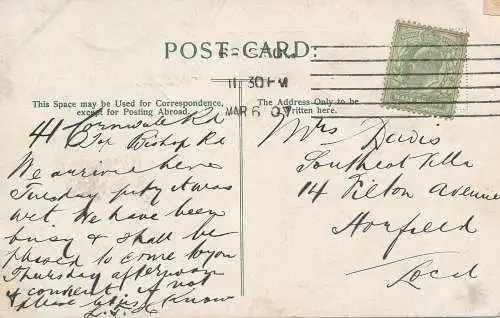 POST-CARD:
11 30 PM
MAR 6 07
This Space may be Used for Correspondence,
except for Posting Abroad.
The Address Only to be
Written here.
41 Cornwall Rd
Bishop Rd
We arrived here
Tuesday pity it was
wet We have been
busy & shall be
pleased to come to you
Thursday afternoon
if not
please let us know
Mrs Davis
Southcot Villa
14 Filton Avenue
Horfield
Local